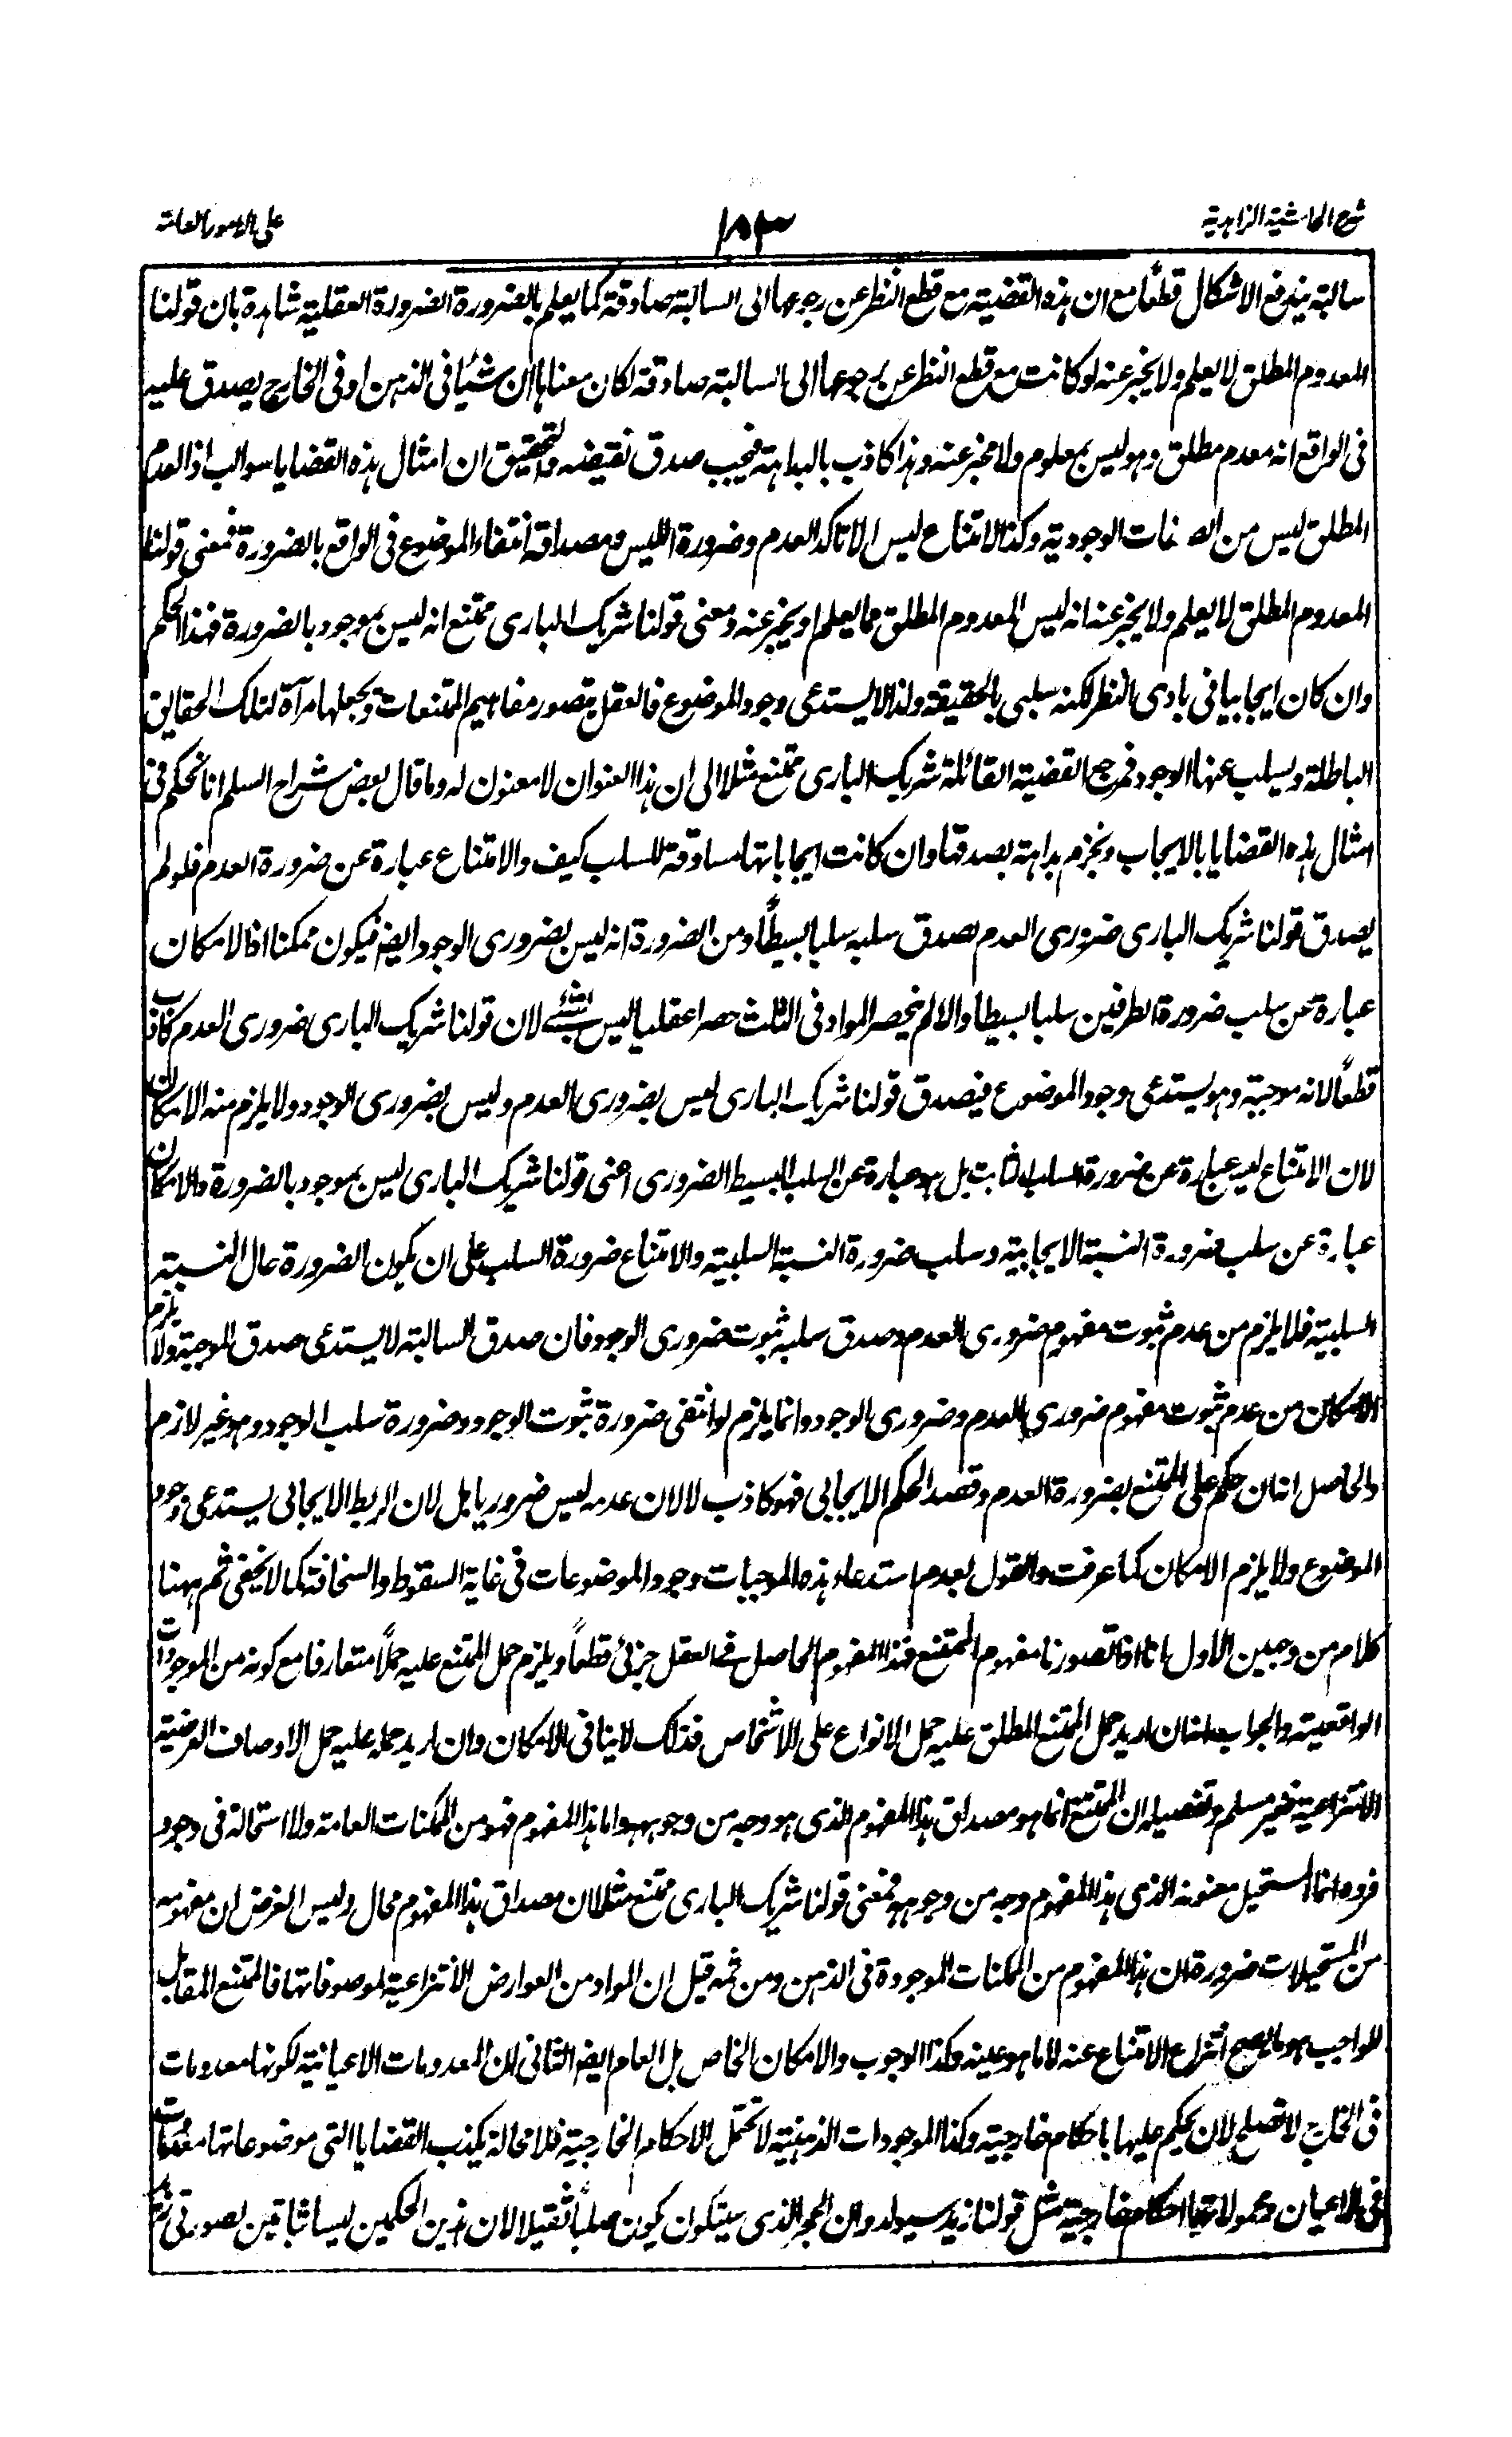 شرح الحاشية الزاهدية
١٥٣
على الامور العامة
سالبة يندفع الاشكال قطعًا مع ان هذه القضية مع قطع النظر عن رجوعها الى السالبة صادقة كما يعلم بالضرورة الضرورة العقلية شاهدة بان قولنا
المعدوم المطلق لا يعلم ولا يخبر عنه لو كانت مع قطع النظر عن رجوعها الى السالبة صادقة لكان معناها ان شيئا فى الذهن او فى الخارج يصدق عليه
فى الواقع انه معدوم مطلق وهو ليس بمعلوم ولا مخبر عنه وهذا كاذب بالبداهة فيجب صدق نقيضه والتحقيق ان امثال هذه القضايا سوالب اذ العدم
المطلق ليس من الصفات الوجودية وكذا الامتناع ليس الا تاكد العدم وضرورة الليس ومصداقه انتفاء الموضوع فى الواقع بالضرورة فمعنى قولنا
المعدوم المطلق لا يعلم ولا يخبر عنه انه ليس المعدوم المطلق مما يعلم او يخبر عنه ومعنى قولنا شريك البارى ممتنع انه ليس بموجود بالضرورة فهذا الحكم
وان كان ايجابيا فى بادى النظر لكنه سلبى بالحقيقة ولذا لا يستدعى وجود الموضوع فالعقل يتصور مفاهيم الممتنعات ويجعلها مرآة لتلك الحقائق
الباطلة ويسلب عنها الوجود فمرجع القضية القائلة شريك البارى ممتنع مثلا الى ان هذا العنوان لا معنون له وما قال بعض شراح السلم انا نحكم فى
امثال هذه القضايا بالايجاب ونجزم بداهة بصدقها وان كانت ايجاباتها مساوقة للسلب كيف والامتناع عبارة عن ضرورة العدم فلو لم
يصدق قولنا شريك البارى ضرورى العدم يصدق سلبه سلبا بسيطًا ومن الضرورة انه ليس بضرورى الوجود ايضا فيكون ممكنا اذ الامكان
عبارة عن سلب ضرورة الطرفين سلبا بسيطا والا لم ينحصر المواد فى الثلث حصرا عقليا ليس بشئ لان قولنا شريك البارى ضرورى العدم كاذب
قطعًا لانه موجبة وهو يستدعى وجود الموضوع فيصدق قولنا شريك البارى ليس بضرورى العدم وليس بضرورى الوجود ولا يلزم منه الامكان
لان الامتناع ليس عبارة عن ضرورة السلب الثابت بل هو عبارة عن السلب البسيط الضرورى اعنى قولنا شريك البارى ليس بموجود بالضرورة والامكان
عبارة عن سلب ضرورة النسبة الايجابية وسلب ضرورة النسبة السلبية والامتناع ضرورة السلب على ان يكون الضرورة حال النسبة
السلبية فلا يلزم من عدم ثبوت مفهوم ضرورى العدم وصدق سلبه ثبوت ضرورى الوجود فان صدق السالبة لا يستدعى صدق الموجبة ولا يلزم
الامكان من عدم ثبوت مفهوم ضرورى العدم وضرورى الوجود وانما يلزم لو انتفى ضرورة ثبوت الوجود وضرورة سلب الوجود وهو غير لازم
والحاصل انا ان حكم على الممتنع بضرورة العدم وقصد الحكم الايجابى فهو كاذب لا لان عدمه ليس ضروريا بل لان الربط الايجابى يستدعى وجود
الموضوع ولا يلزم الامكان كما عرفت والقول بعدم استدعاء هذه الموجبات وجود الموضوعات فى غاية السقوط والسخافة كما لا يخفى ثم ههنا
كلام من وجهين الاول انا اذا تصورنا مفهوم الممتنع فهذا المفهوم الحاصل فى العقل جزئى قطعًا ويلزم حمل الممتنع عليه حملًا متعارفا مع كونه من الموجودات
الواقعية والجواب عنه ان اريد حمل الممتنع المطلق عليه حمل الانواع على الاشخاص فذلك لا ينافى الامكان وان اريد حمله عليه حمل الاوصاف العرضية
الانتزاعية فغير مسلم وتفصيله ان الممتنع انما هو مصداق هذا المفهوم الذى هو وجه من وجوهه واما هذا المفهوم فهو من الممكنات العامة ولا استحالة فى وجود
فرده انما المستحيل معنونه الذى هذا المفهوم وجه من وجوهه فمعنى قولنا شريك البارى ممتنع مثلا ان مصداق هذا المفهوم محال وليس الغرض ان مفهومه
من المستحيلات ضرورة ان هذا المفهوم من الممكنات الموجودة فى الذهن ومن ثمه قيل ان المواد من العوارض الانتزاعية لموصوفاتها فالممتنع المقابل
للواجب هو ما يصح انتزاع الامتناع عنه لا ما هو عينه وكذا الوجوب والامكان الخاص بل العام ايضا الثانى ان المعدومات الاعيانية لكونها معدومات
فى الخارج لا تصلح لان يحكم عليها باحكام خارجية وكذا الموجودات الذهنية لا تحتمل الاحكام الخارجية فلا محالة يكذب القضايا التى موضوعاتها معدومات
فى الاعيان ومحمولاتها احكام خارجية مثل قولنا زيد سيولد وان الحجر الذى سيتكون يكون صلبًا ثقيلا لان هذين الحكمين ليسا ثابتين لصورتى